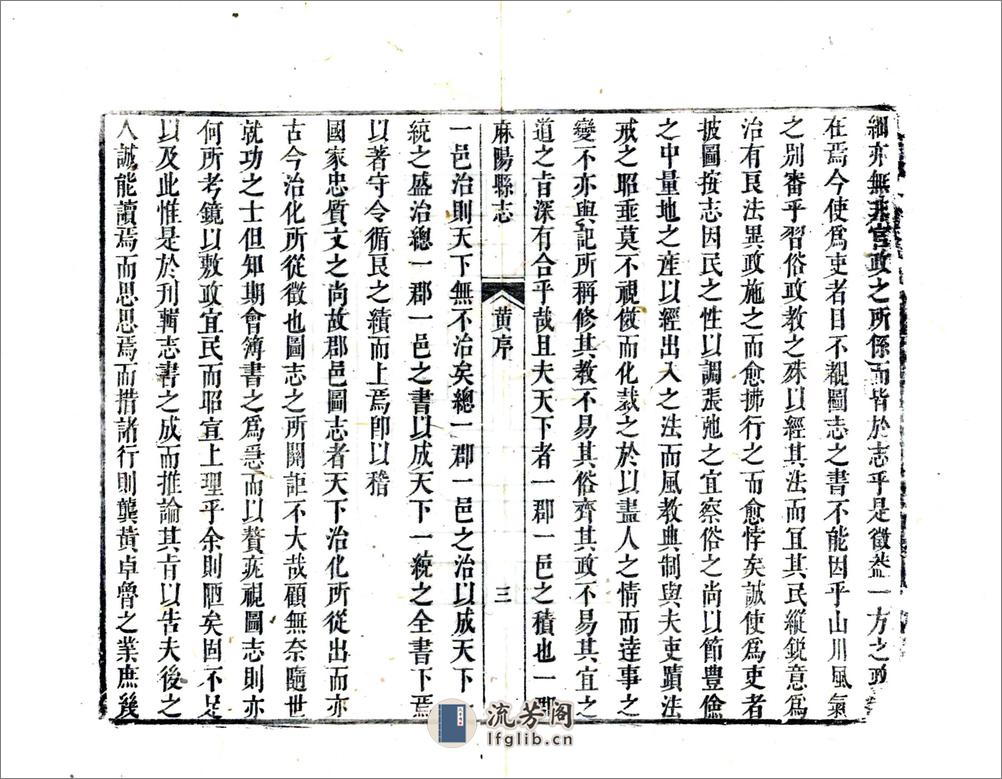 細亦無非官政之所係而皆於志乎是徵蓋一方之政
在焉今使爲吏者目不覩圖志之書不能因乎山川風氣
之别審乎習俗政教之殊以經其法而宜其民縱鋭意爲
治有良法異政施之而愈拂行之而愈悖矣誠使爲吏者
披圖按志因民之性以調張弛之宜察俗之尚以節豊儉
之中量地之產以經出入之法而風教典制與夫吏蹟法
戒之昭垂莫不視倣而化裁之於以盡人之情而達事之
變不亦與記所稱修其教不易其俗齊其政不易其宜之
道之旨深有合乎哉且夫天下者一郡一邑之積也一郡
麻陽縣志
黄序
三
一邑治則天下無不治矣總一郡一邑之治以成天下一
統之盛治總一郡一邑之書以成天下一統之全書下焉
以著守令循良之績而上焉卽以稽
國家忠質文之尚故郡邑圖志者天下治化所從出而亦
古今治化所從徵也圖志之所關詎不大哉顧無奈隨世
就功之士但知期會簿書之爲急而以贅疣視圖志則亦
何所考鏡以敷政宜民而昭宣上理乎余則陋矣固不足
以及此惟是於刋輯志書之成而推論其旨以告夫後之
人誠能讀焉而思思焉而措諸行則龔黄卓魯之業庶幾
流芳阁
lfglib.cn